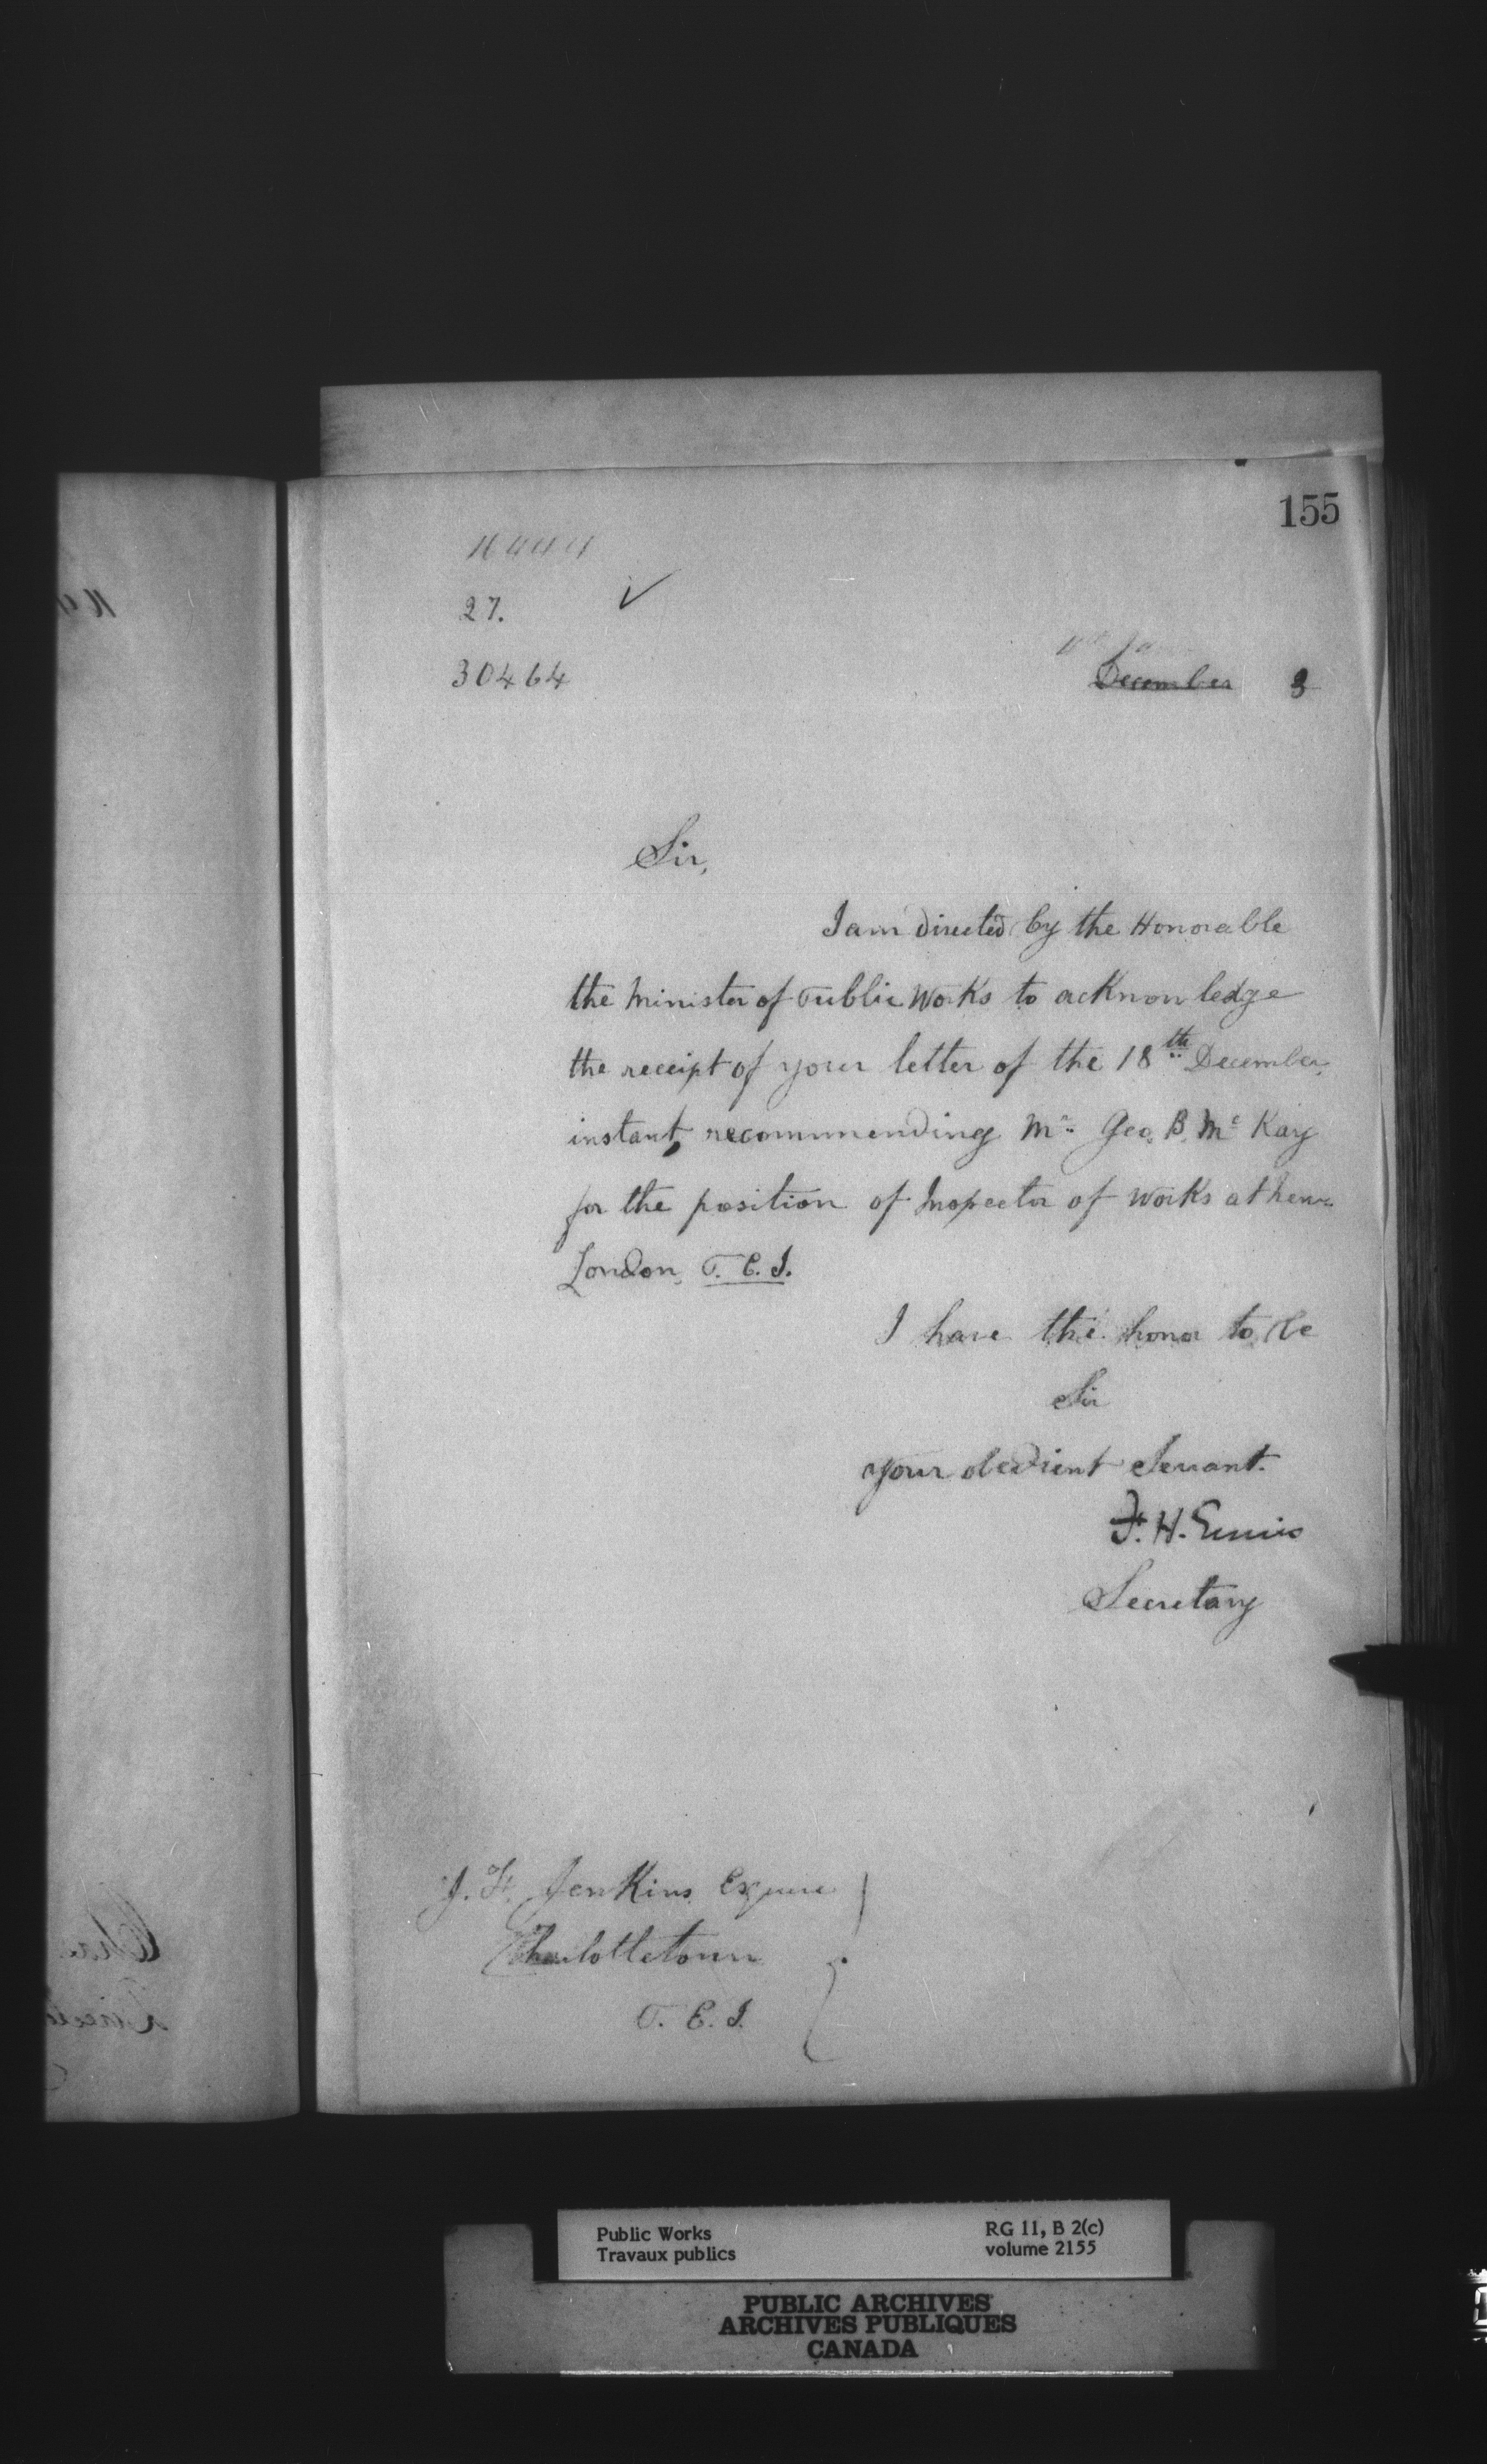 155
16444
27. ✓
30464
December 3
Sir,
I am directed by the Honorable
the Minister of Public Works to acknowledge
the receipt of your letter of the 18th December,
instant, recommending Mr. Geo. B. McKay
for the position of Inspector of Works at New
London, P. E. I.
I have the honor to be
Sir
your obedient Servant.
F. H. Ennis
Secretary
J. F. Jenkins Esquire
Charlottetown
P. E. I.
Public Works
Travaux publics
RG 11, B 2(c)
volume 2155
PUBLIC ARCHIVES
ARCHIVES PUBLIQUES
CANADA